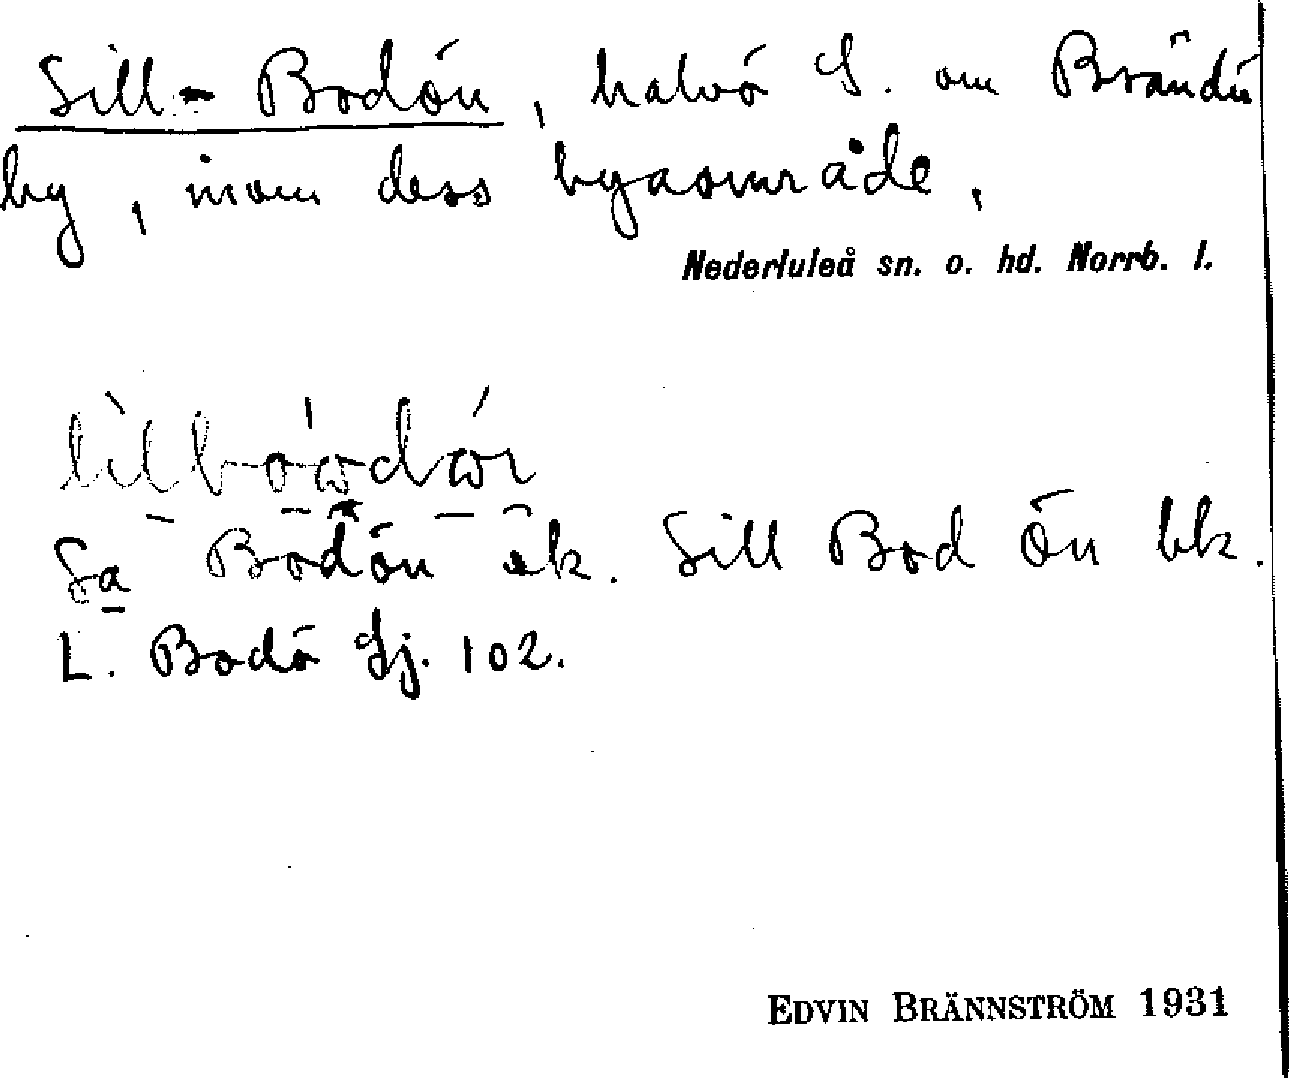 Sill-Bodön, halvö S. om Brändö
by, inom dess byaområde,
Nederluleå sn. o. hd. Norrb. l.
Bodön ek. Sill Bod Ön bk.
L. Bodö Sj. 102.
EDVIN BRÄNNSTRÖM 1931